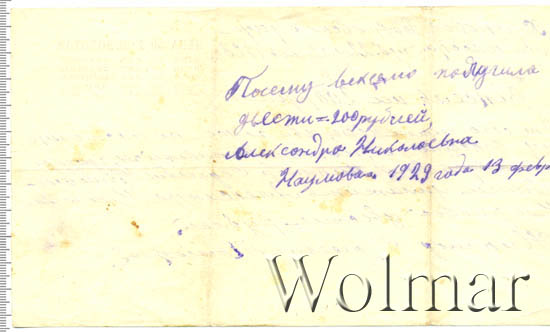 Посему векселю получила
двести = 200 рублей,
Александра Николаевна
Наумова 1929 года 13 февр
Wolmar